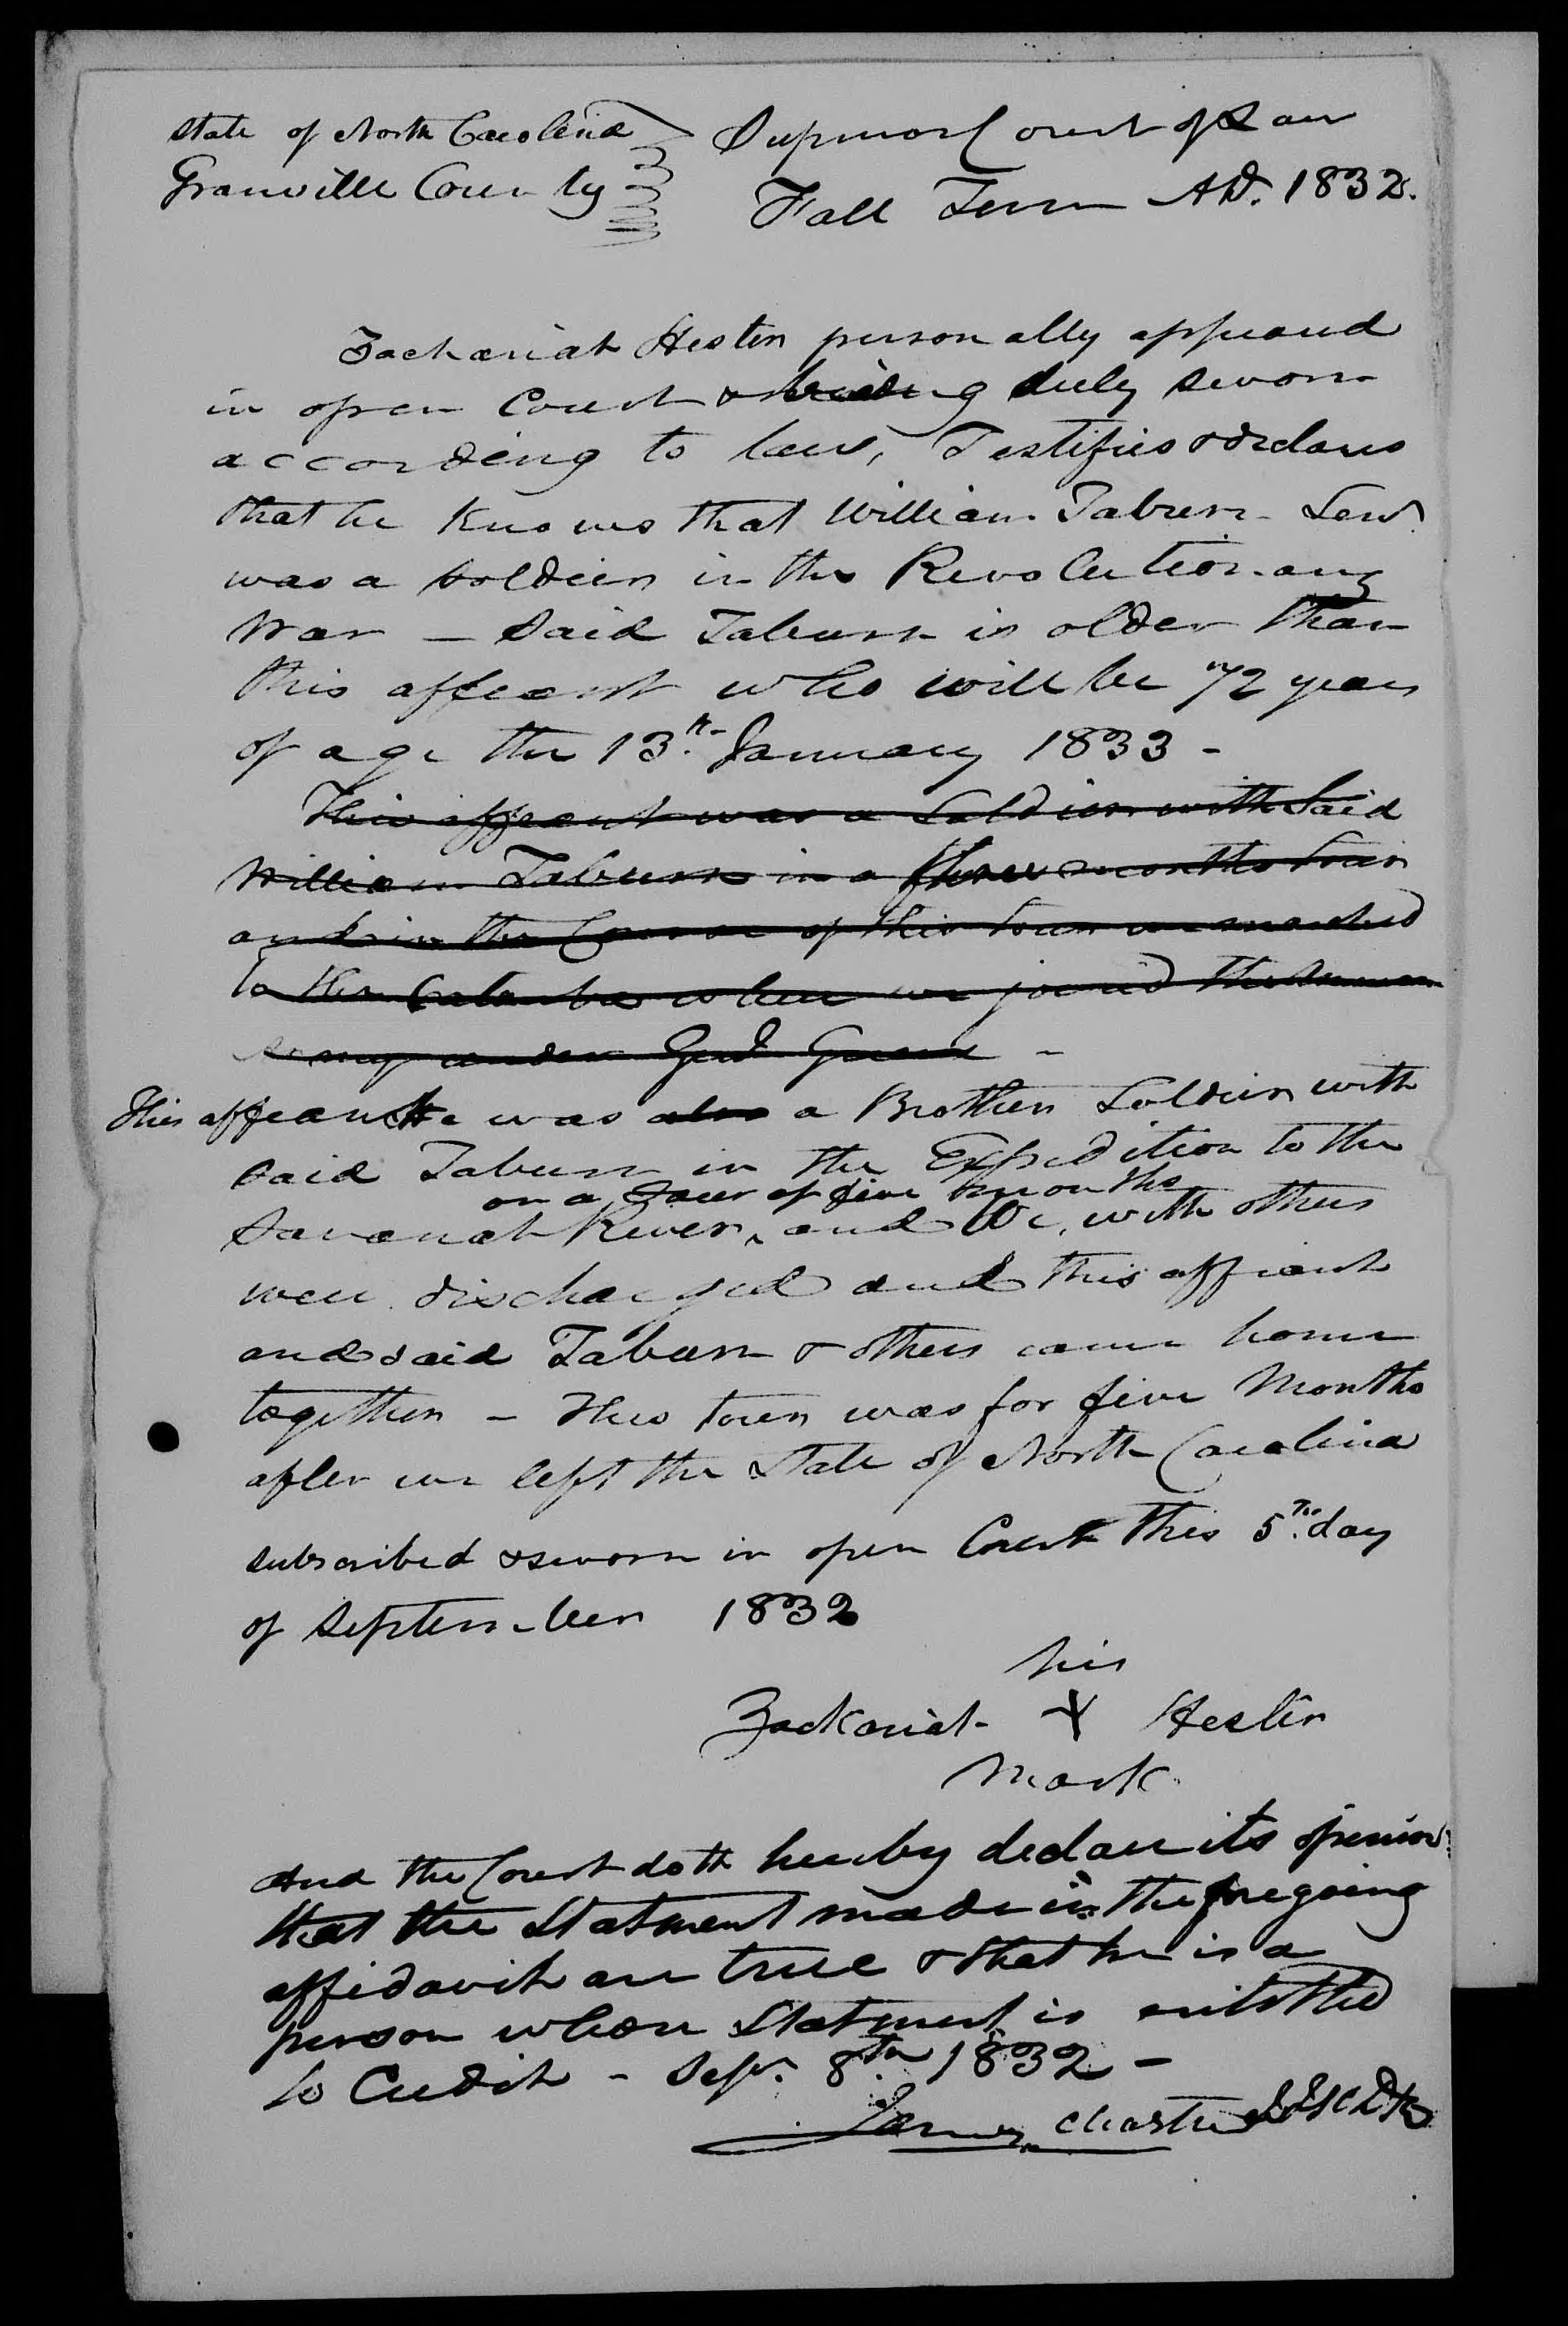 State of North Carolina } Superior Court of Law
Granville County } Fall Term AD. 1832.
Zachariah Hester personally appeared
in open Court & being duly sworn
according to law, Testifies & declares
that he knows that William Taburn Senr.
was a soldier in the Revolutionary
War — Said Taburn is older than
this affiant who will be 72 years
of age the 13th. January 1833 -
This affiant was a Soldier with Said
William Taburn in a three months tour
and in the Course of this tour we marched
to the Catawba where we joined the
army under Genl Greene -
This affiant He was also a Brother Soldier with
said Taburn in the Expedition to the
on a Tour of five months
Savanah River, and We, with others
were discharged and this affiant
and said Taburn & others came home
together - This tour was for five Months
after we left the State of North Carolina
subscribed & sworn in open Court this 5th. day
of September 1832
his
Zackariah X Hester
mark
And the Court doth hereby declare its opinion
that the Statment made in the foregoing
affidavit are true & that he is a
person whose Statment is entitled
to Credit - Sepr. 8th. 1832 -